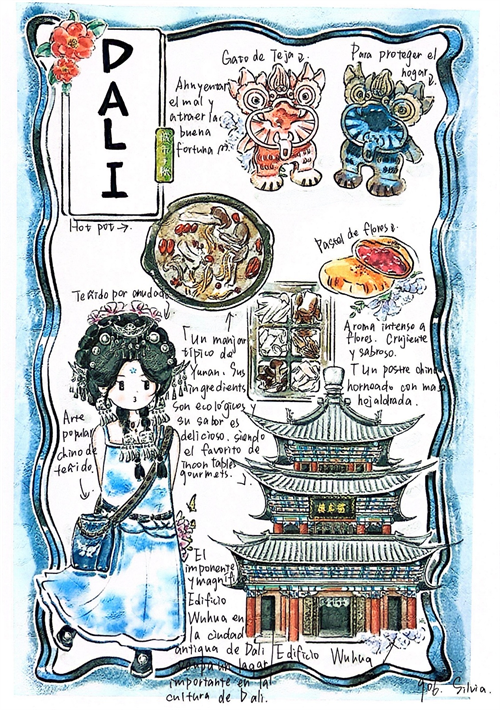 DALI
Gato de Teja
Ahuyentar
el mal y
atraer la
buena
fortuna
Para proteger el
hogar
Hot pot →
Pastel de flores
Teñido por anudado
Aroma intenso a
flores. Crujiente
y sabroso.
Un postre chino
horneado con masa
hojaldrada.
Un manjar
típico de
Yunan. Sus
ingredients
son ecológicos y
su sabor es
delicioso, siendo
el favorito de
gourmets.
Arte
popular
chino de
teñido.
El
imponente
y magnífi
Edificio
Wuhua en
la ciudad
antigua de Dali
ocupa un lugar
importante en la
cultura de Dali.
Edificio Wuhua
Silvia.